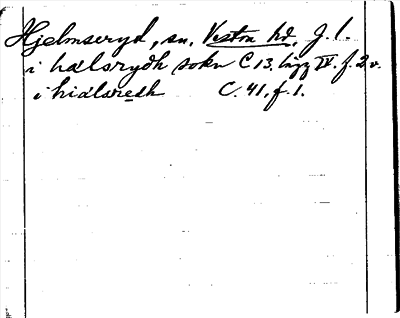 Hjelmseryd, sn. Vestra hd, J. l.
i hälsrydh sokn C 13. lägg IV. f. 2 v.
i hiälsredh C. 41, f. 1.